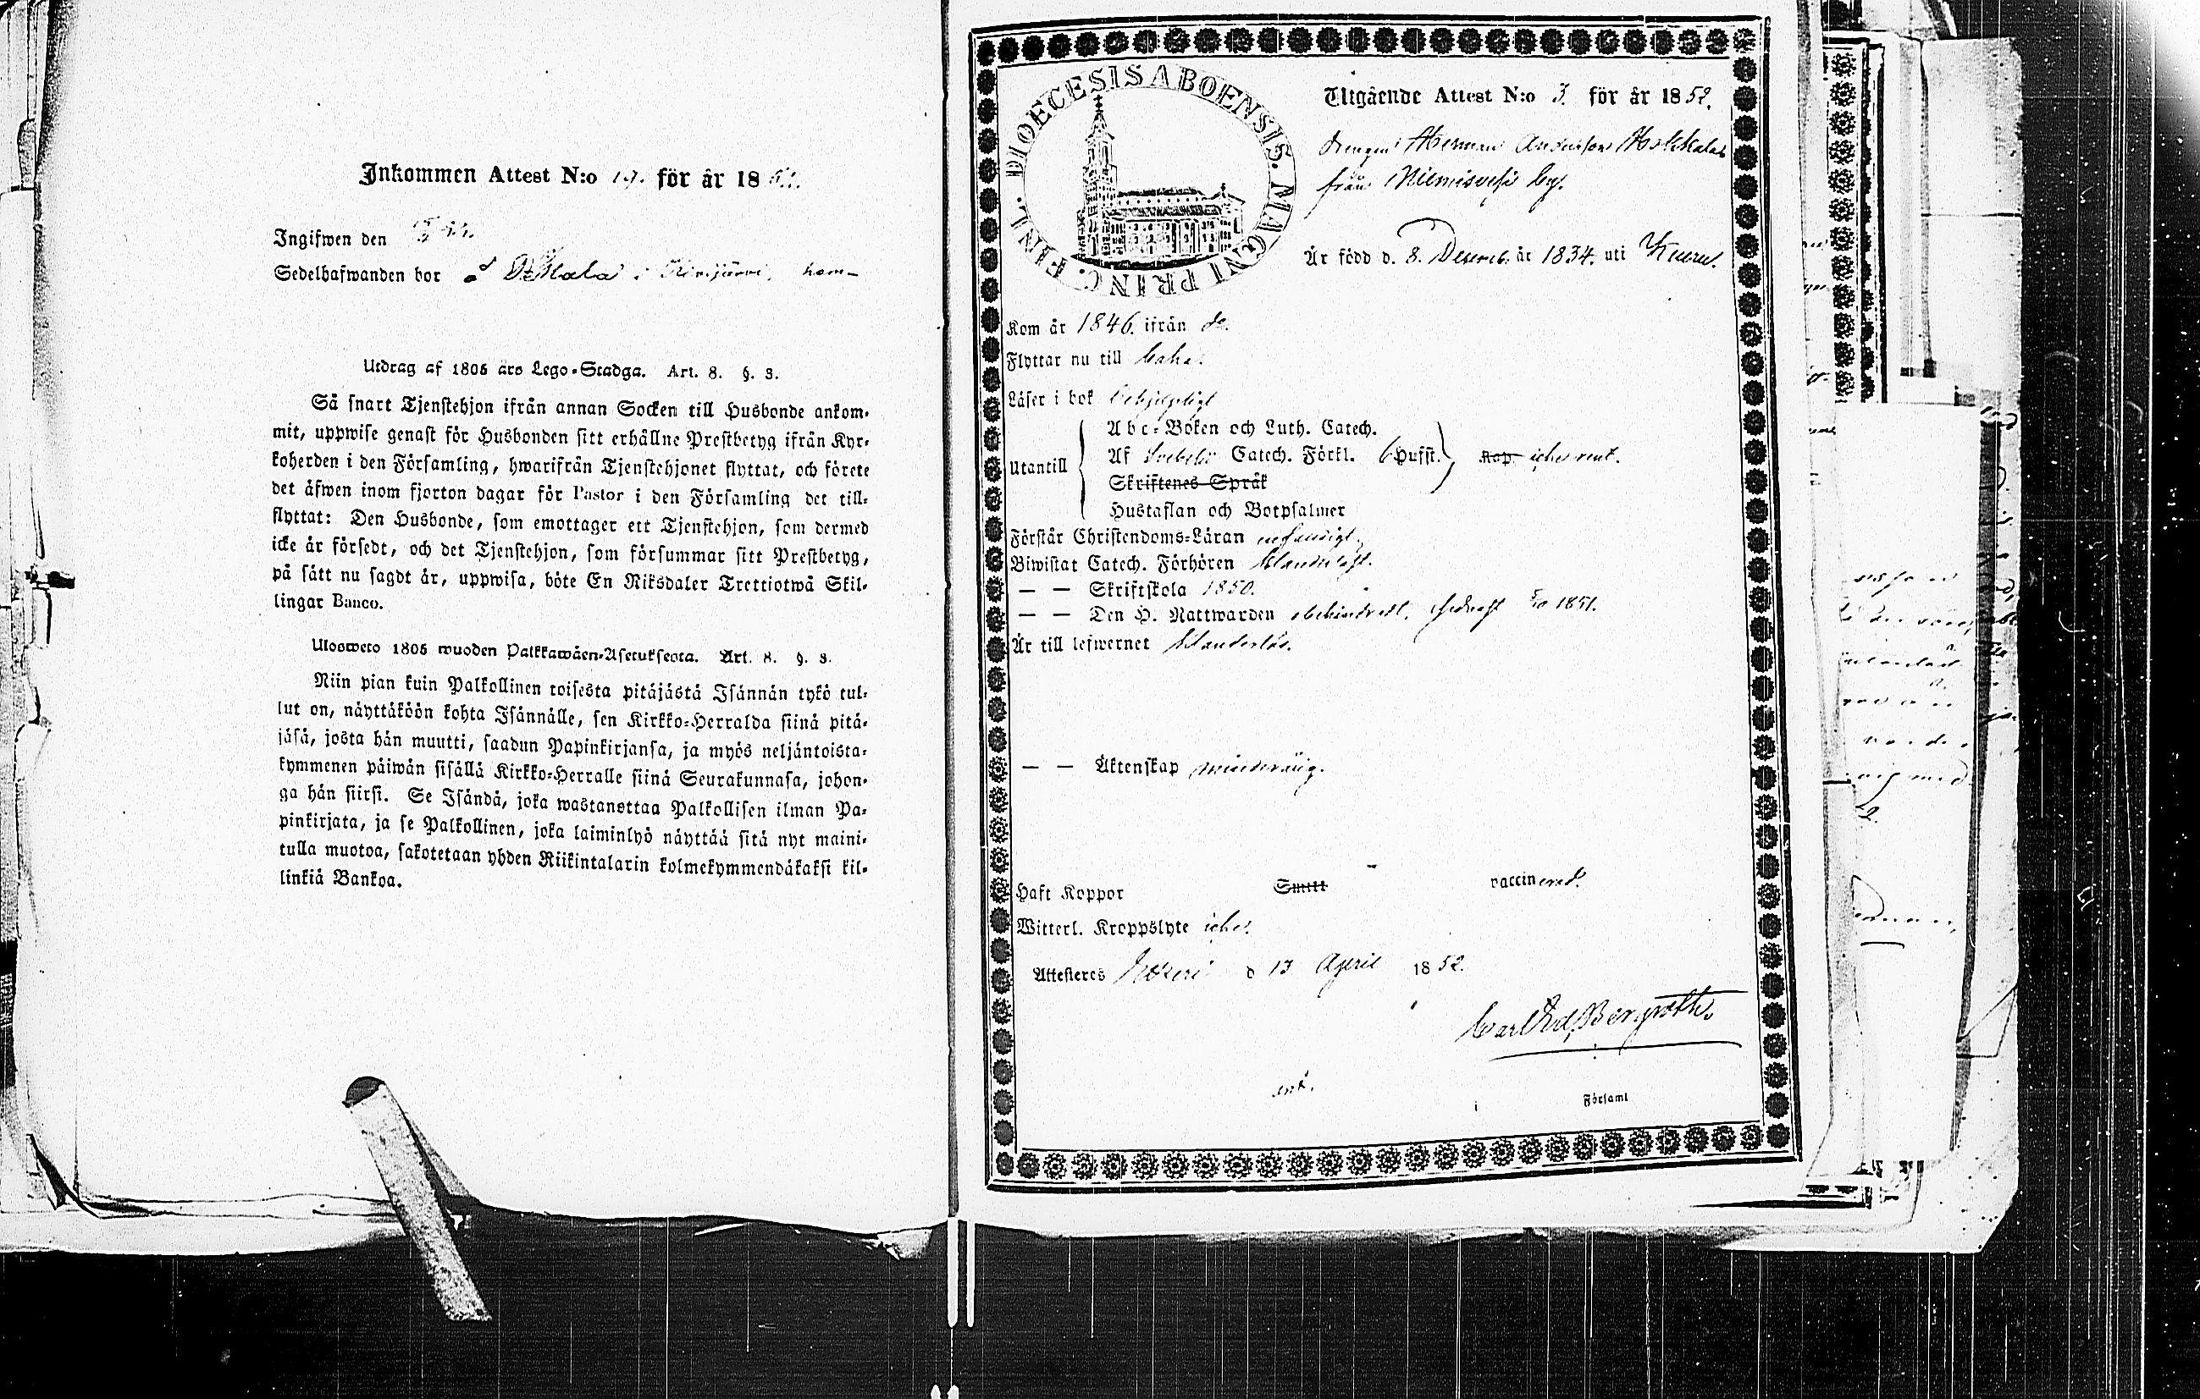 Inkommen Attest N:o 19. för år 1852.
Ingifwen den
Sedelhafwanden bor
Utdrag af 1805 års Lego-Stadga. Art. 8. §. 3.
Så snart Tjenstehjon ifrån annan Socken till Husbonde ankom-
mit, uppwise genast för Husbonden sitt erhållne Prestbetyg ifrån Kyr-
koherden i den Församling, hwarifrån Tjenstehjonet flyttat, och förete
det äfwen inom fjorton dagar för Pastor i den Församling det till-
flyttat: Den Husbonde, som emottager ett Tjenstehjon, som dermed
icke är försedt, och det Tjenstehjon, som försummar sitt Prestbetyg,
på sätt nu sagdt är, uppwisa, böte En Riksdaler Trettiotwå Skil-
lingar Banco.
Ulosweto 1805 wuoden Palkkawäen-Asetuksesta. Art. 8. §. 3.
Niin pian kuin Palkollinen toisesta pitäjästä Isännän tykö tul-
lut on, näyttäköön kohta Isännälle, sen Kirkko-Herralda siinä pitä-
jäsä, josta hän muutti, saadun Papinkirjansa, ja myös neljäntoista-
kymmenen päiwän sisällä Kirkko-Herralle siinä Seurakunnasa, johon-
ga hän siirsi. Se Isändä, joka wastanottaa Palkollisen ilman Pa-
pinkirjata, ja se Palkollinen, joka laiminlyö näyttää sitä nyt maini-
tulla muotoa, sakotetaan yhden Riikintalarin kolmekymmendäkaksi kil-
linkiä Bankoa.
FINL. DIOECESIS ABOENSIS. MAGNI PRINC.
Utgående Attest N:o 3. för år 1852.
Drengen Herman Andersson
från Niemisvesi by.
Är född d. 8. Decemb. år 1834. uti Kuru.
Kom år 1846. ifrån do.
Flyttar nu till
Läser i bok
Utantill
Abc-Boken och Luth. Catech.
Af Svebelii Catech. Förkl. 6 Hufst. Kap. icke rent.
Skriftenes Språk
Hustaflan och Botpsalmer
Förstår Christendoms-Läran enfaldigt.
Biwistat Catech. Förhören klanderlöst.
— — Skriftskola 1850.
— — Den H. Nattwarden obehindradt, sednast 1851.
Är till lefwernet klanderlös.
— — Äktenskap minderårig.
Haft Koppor Smitt vaccinerad.
Witterl. Kroppslyte icke.
Attesteres d 13 April 1852.
Carl Ed. Bergroth.
Församl